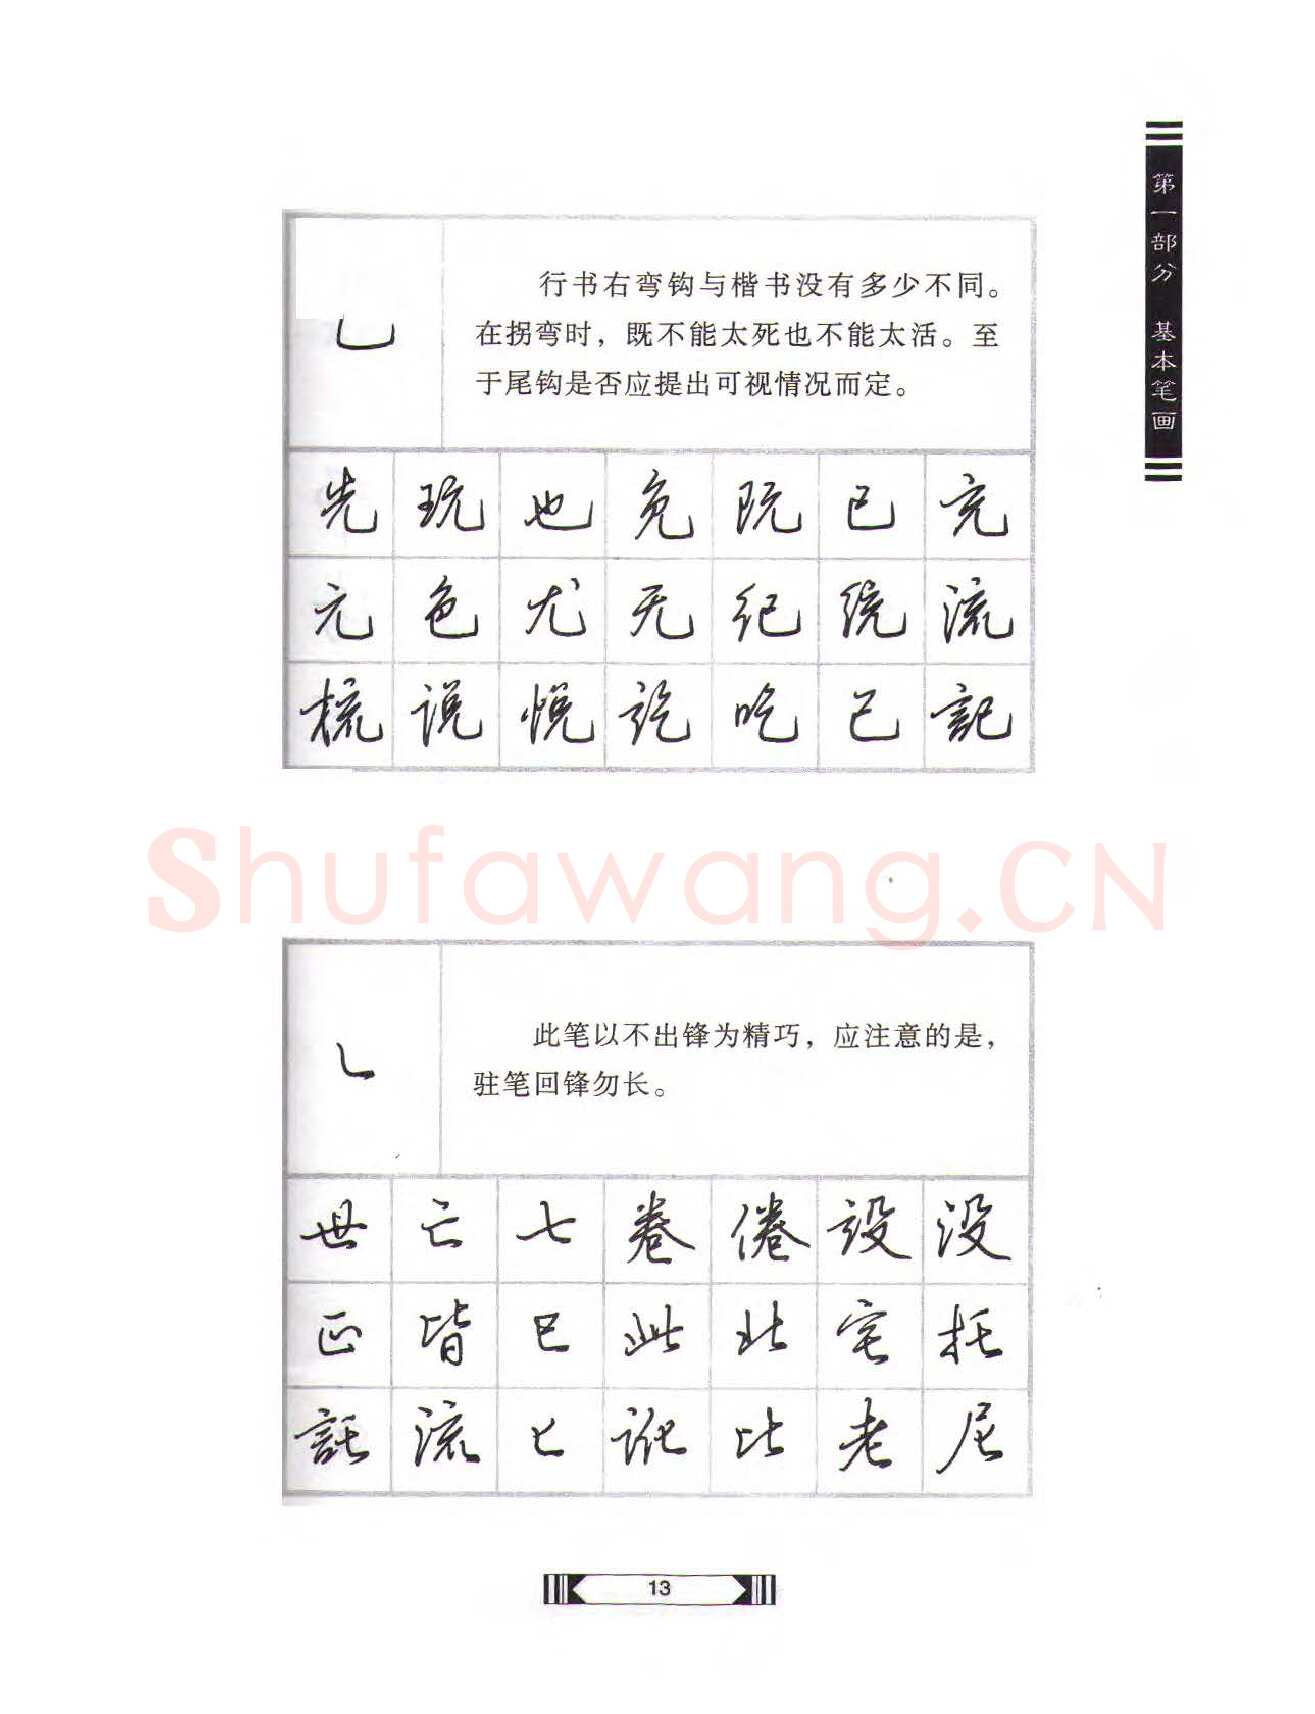 第一部分 基本笔画
行书右弯钩与楷书没有多少不同。
在拐弯时，既不能太死也不能太活。至
于尾钩是否应提出可视情况而定。
先 玩 也 免 阮 已 充
元 色 尤 无 纪 统 流
梳 说 悦 讫 吃 己 記
Shufawang.CN
此笔以不出锋为精巧，应注意的是，
驻笔回锋勿长。
世 亡 七 卷 倦 設 没
正 皆 巳 此 北 宅 托
託 流 匕 訛 比 老 尼
13